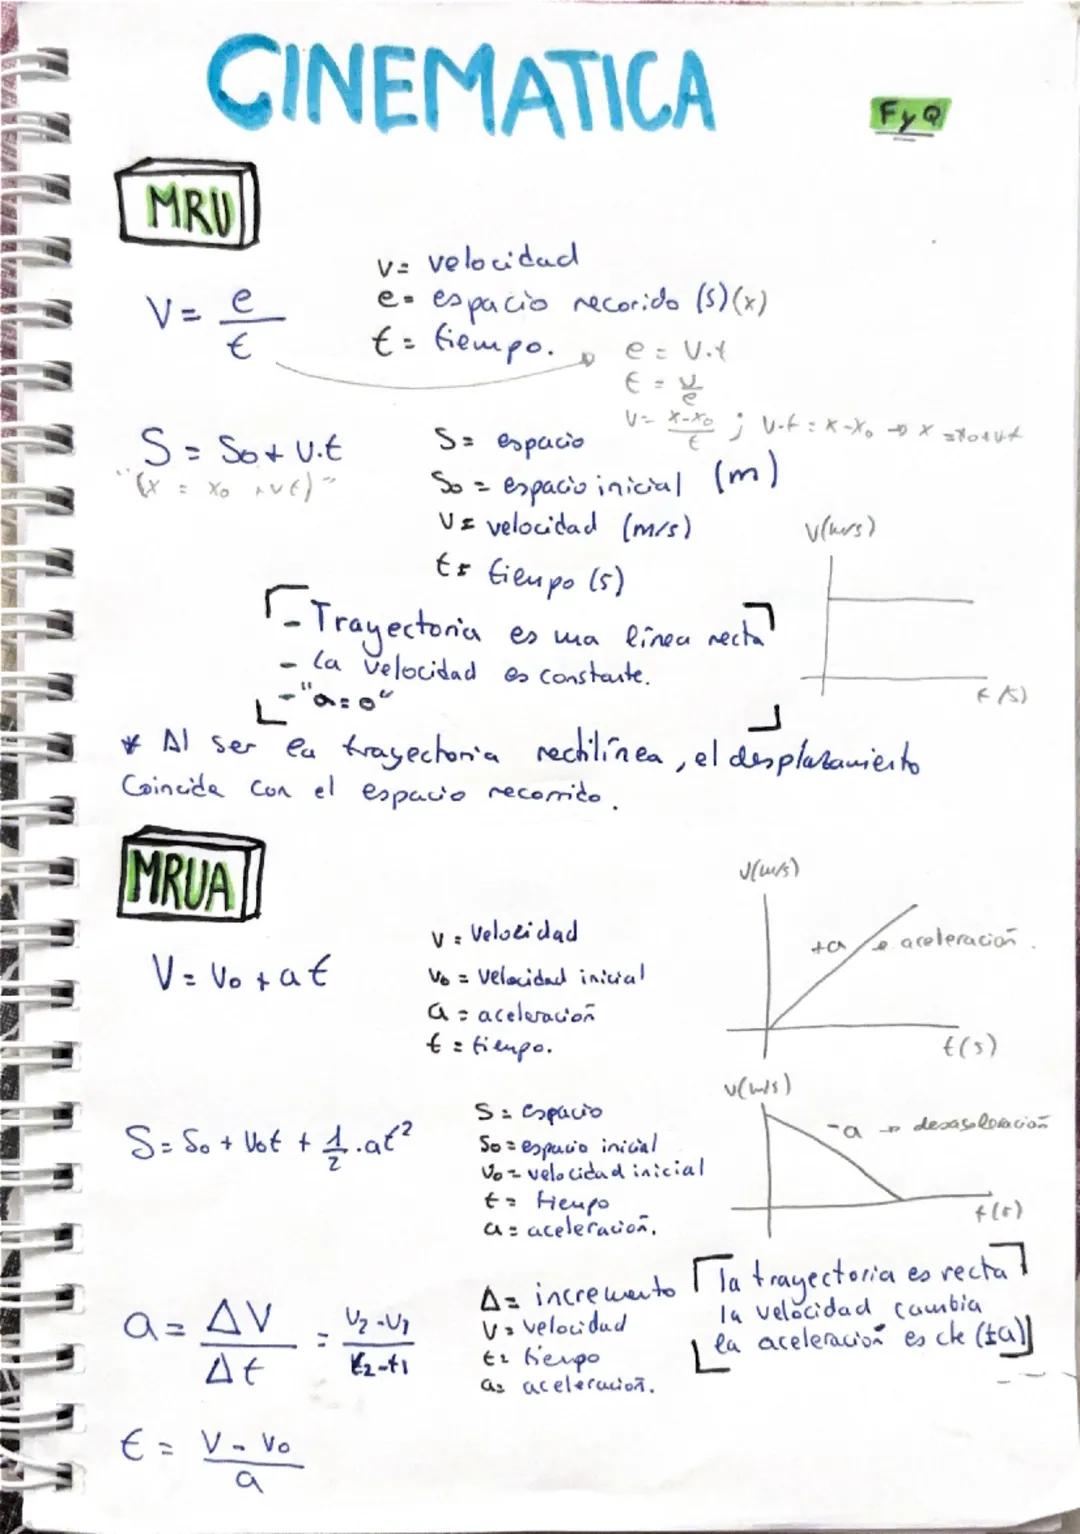 CINEMATICA
FyQ
MRU
V = e/t
V = velocidad
e = espacio recorido (s)(x)
t = tiempo.
e = V.t
t = v/e
V = x-x₀/t ; V.t = x-x₀ → x = x₀+vt
S = S₀ + V.t
"(x = x₀ + vt)"
S = espacio
S₀ = espacio inicial (m)
V = velocidad (m/s)
t = tiempo (s)
V(m/s)
t (s)
- Trayectoria es una línea recta
- la velocidad es constante.
- "a = 0"
* Al ser la trayectoria rectilínea, el desplazamiento
Coincide con el espacio recorrido.
MRUA
V = V₀ + at
V = Velocidad
V₀ = Velocidad inicial
a = aceleración
t = tiempo.
V(m/s)
+a → aceleración.
t(s)
S = S₀ + V₀t + 1/2 . at²
S = espacio
S₀ = espacio inicial
V₀ = velocidad inicial
t = tiempo
a = aceleración.
V(m/s)
-a → desaceleración
t(s)
a = ΔV/Δt = V₂-V₁/t₂-t₁
Δ = incremento
V = velocidad
t = tiempo
a = aceleración.
la trayectoria es recta
la velocidad cambia
la aceleración es cte (±a)
t = V - V₀/a